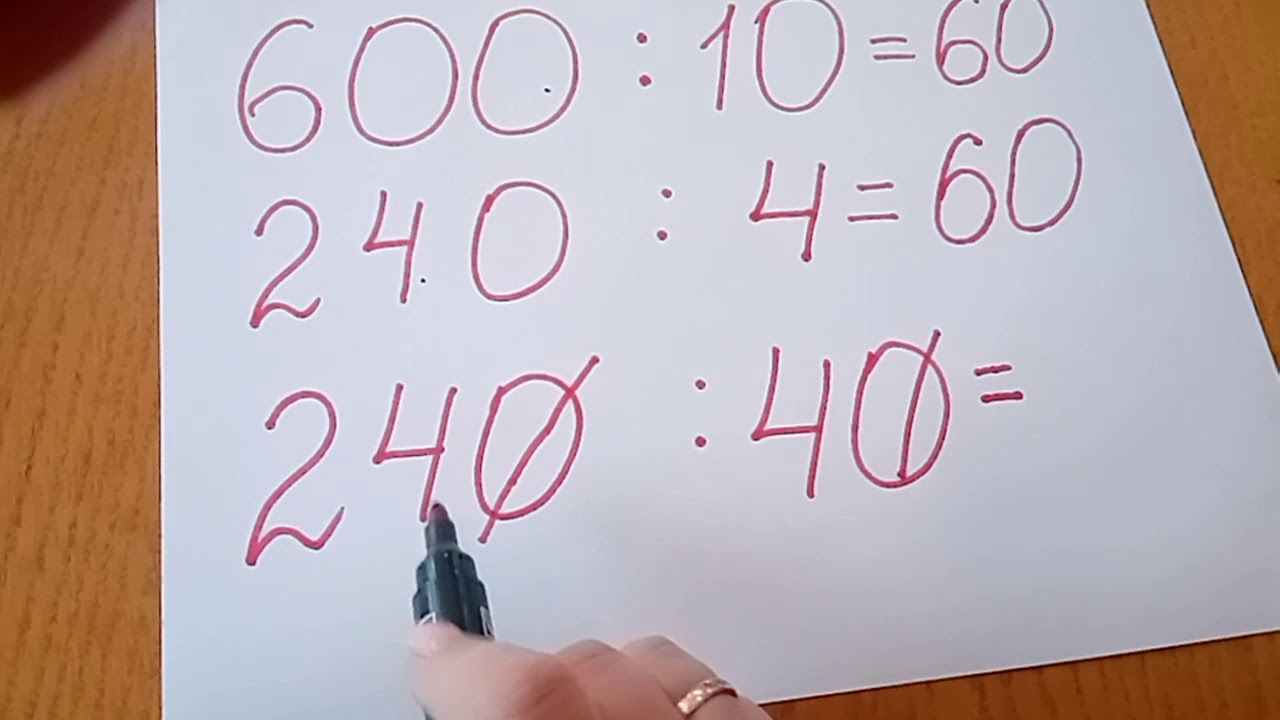 600 : 10 = 60
240 : 4 = 60
240 : 40 =